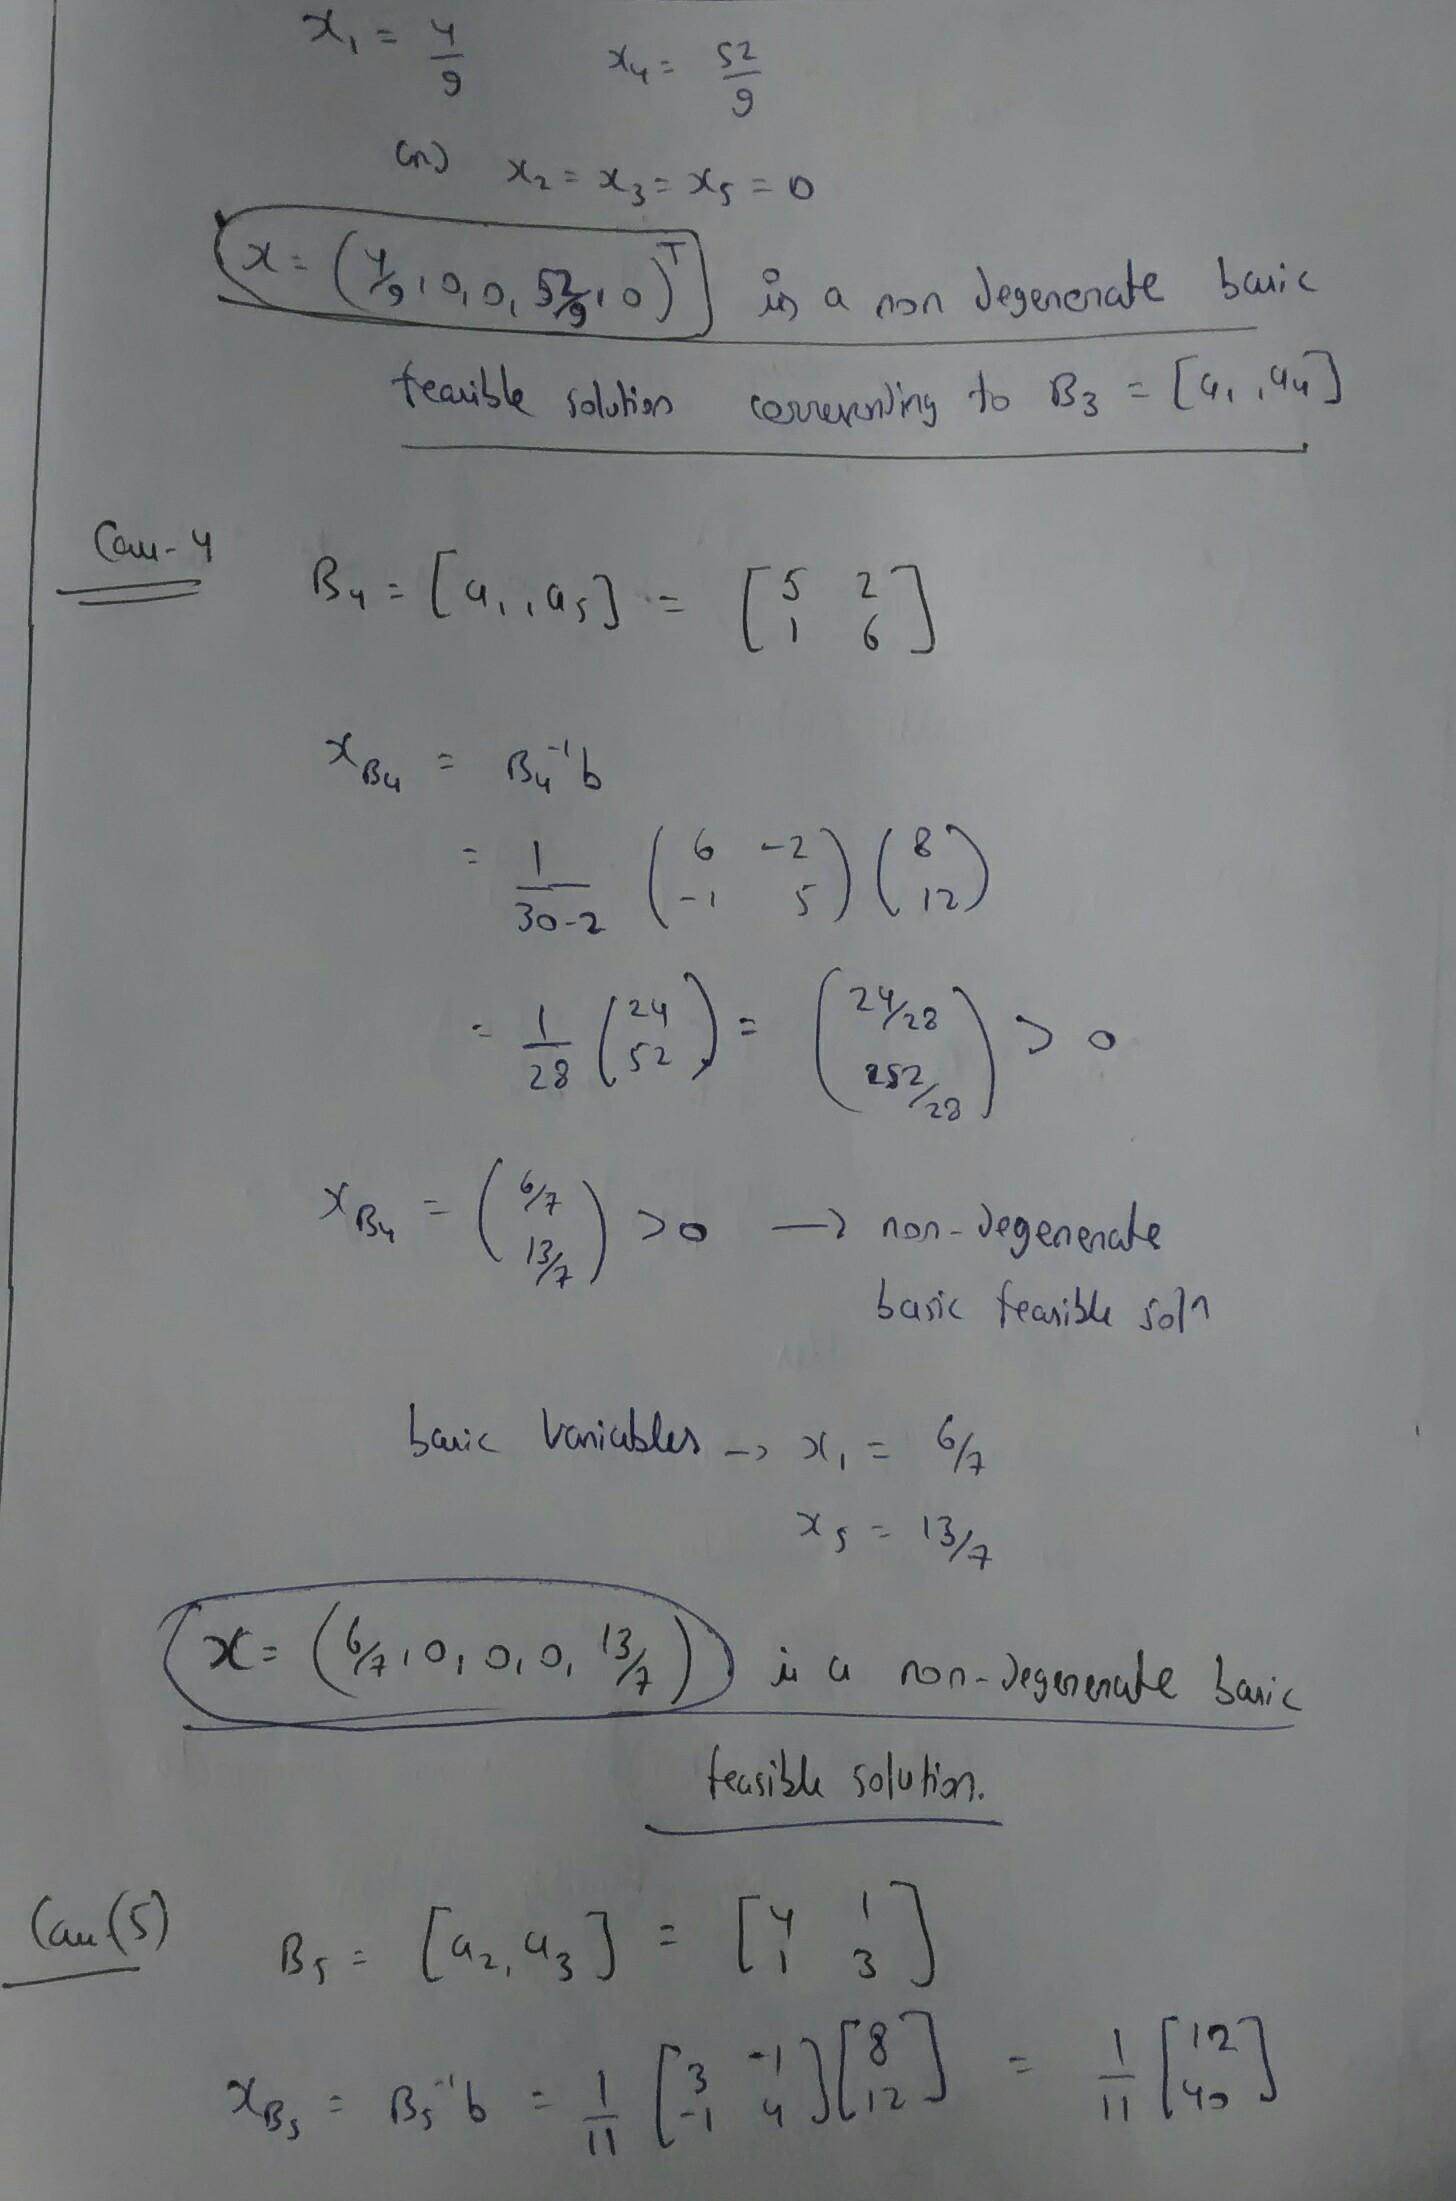 x₁ = 4/9 x₄ = 52/9
x₂ = x₃ = x₅ = 0
x = (4/9, 0, 0, 52/9, 0)ᵀ is a non degenerate basic
feasible solution corresponding to B₃ = [a₁, a₄]
Case-4 B₄ = [a₁, a₅] = [5 2; 1 6]
x_B₄ = B₄⁻¹b
= 1/(30-2) (6 -2; -1 5) (8; 12)
= 1/28 (24; 52) = (24/28; 252/28) > 0
x_B₄ = (6/7; 13/7) > 0 → non-degenerate
basic feasible soln
basic variables → x₁ = 6/7
x₅ = 13/7
x = (6/7, 0, 0, 0, 13/7) is a non-degenerate basic
feasible solution.
Case(5) B₅ = [a₂, a₃] = [4 1; 1 3]
x_B₅ = B₅⁻¹b = 1/11 [3 -1; -1 4] [8; 12] = 1/11 [12; 40]